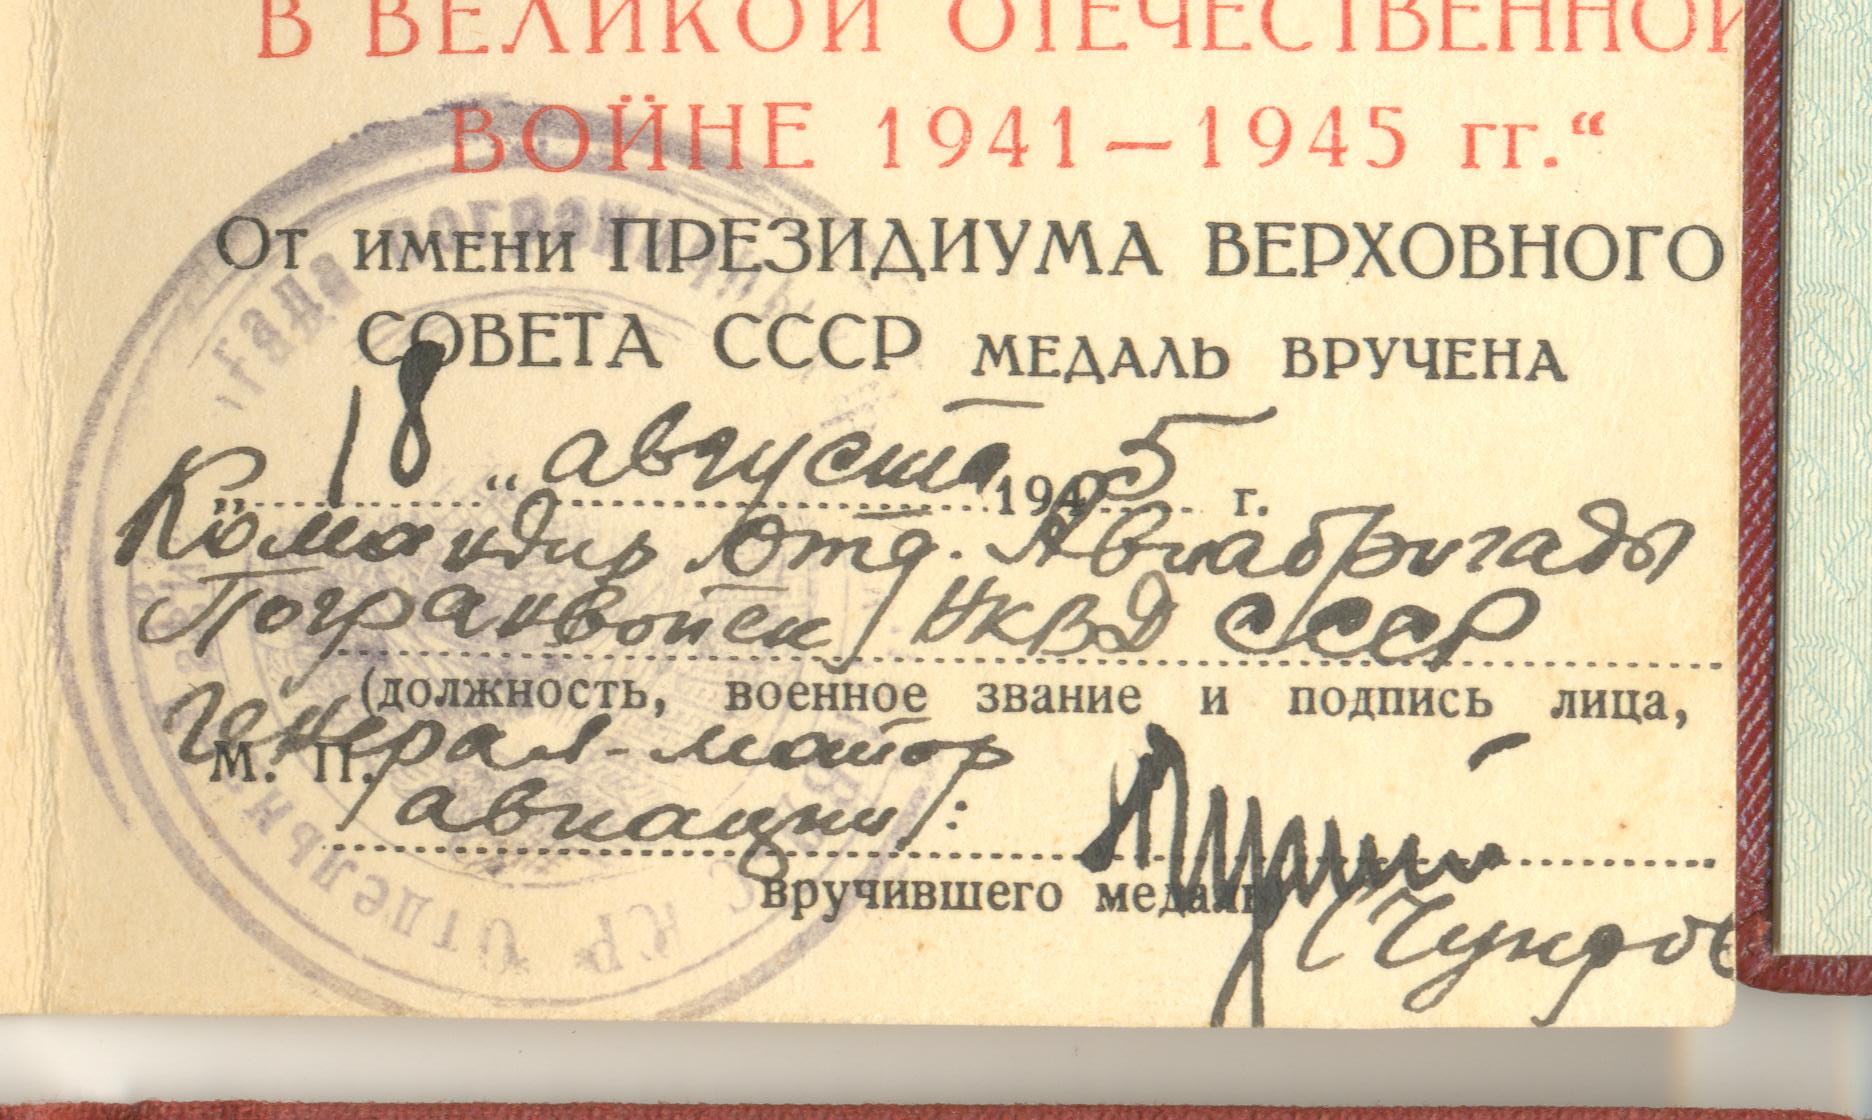 В ВЕЛИКОЙ ОТЕЧЕСТВЕННОЙ
ВОЙНЕ 1941—1945 гг.“
От имени ПРЕЗИДИУМА ВЕРХОВНОГО
СОВЕТА СССР МЕДАЛЬ ВРУЧЕНА
„18“ августа 1945 г.
Командир Отд. Авиабригады
Погранвойск НКВД СССР
(должность, военное звание и подпись лица,
Генерал-майор
М. П.
авиации:
вручившего медаль)
(Чупров